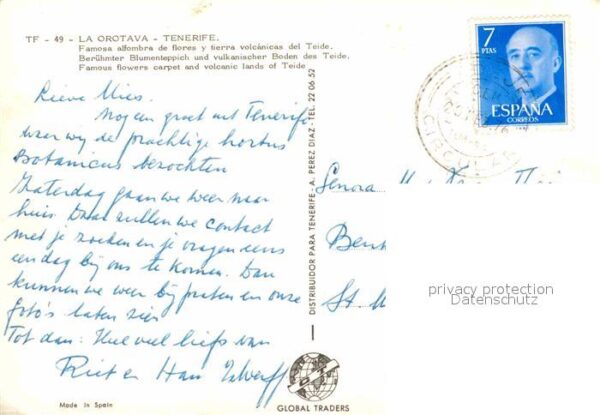 TF - 49 - LA OROTAVA - TENERIFE.
Famosa alfombra de flores y tierra volcánicas del Teide.
Berühmter Blumenteppich und vulkanischer Boden des Teide.
Famous flowers carpet and volcanic lands of Teide
7
PTAS
ESPAÑA
CORREOS
Lieve Mies.
Nog een groet uit Tenerife
waar wy de prachtige hortus
Botanicus bezochten
Zaterdag gaan we weer naar
huis. Daar zullen we contact
met je zoeken en je vragen eens
een dag bij ons te komen. Dan
kunnen we weer bij praten en onze
foto's laten zien
Tot dan: Heel veel liefs van
Riet en Han
DISTRIBUIDOR PARA TENERIFE - A. PEREZ DIAZ - TEL. 22 06 52
Senora
St.
privacy protection
Datenschutz
Made In Spain
GLOBAL TRADERS